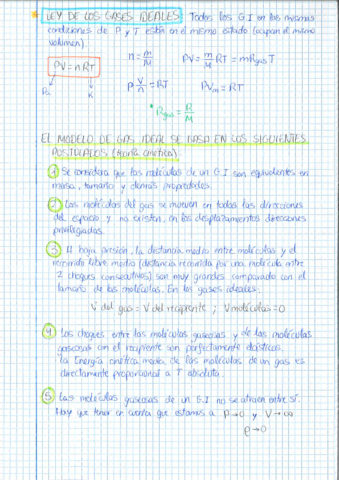 LEY DE LOS GASES IDEALES: Todos los G.I en las mismas
condiciones de P y T están en el mismo estado (ocupan el mismo
volumen)
PV = nRT
Pa
K
n = m/M
PV = m/M RT = m Rgas T
P V/n = RT
PVm = RT
* Rgas = R/M
EL MODELO DE GAS IDEAL SE BASA EN LOS SIGUIENTES
POSTULADOS (teoría cinética).
1 Se considera que las moléculas de un G.I son equivalentes en
masa, tamaño y demás propiedades.
2 Las moléculas del gas se mueven en todas las direcciones
del espacio y no existen, en los desplazamientos direcciones
privilegiadas.
3 A baja presión, la distancia media entre moléculas y el
recorrido libre medio (distancia recorrida por una molécula entre
2 choques consecutivos) son muy grandes comparado con el
tamaño de las moléculas. En los gases ideales:
V del gas = V del recipiente ; V moléculas = 0
4 Los choques entre las moléculas gaseosas y de las moléculas
gaseosas con el recipiente son perfectamente elásticos.
La Energía cinética media de las moléculas de un gas es
directamente proporcional a T absoluta.
5 Las moléculas gaseosas de un G.I no se atraen entre sí.
Hay que tener en cuenta que estamos a P→0 y V→∞
ρ→0